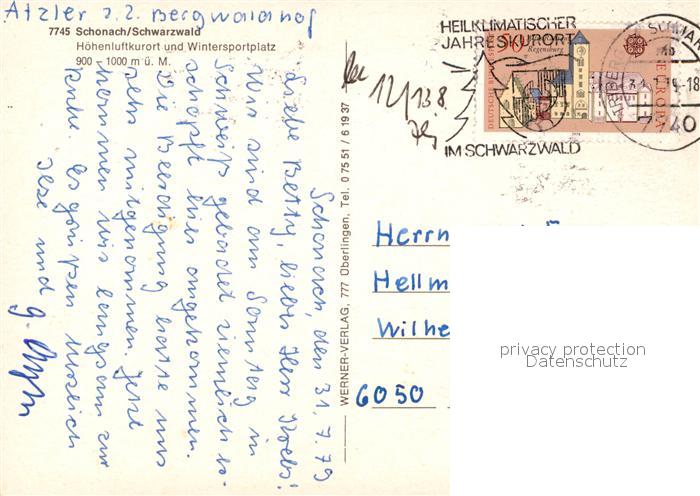 Atzler z.Z. Bergwaldhof
7745 Schonach/Schwarzwald
Höhenluftkurort und Wintersportplatz
900 – 1000 m ü. M.
Schonach, den 31.7.79
Liebe Betty, lieber Herr Krebs!
Wir sind am Sonntag in
Schweiß gebadet ziemlich er-
schöpft hier angekommen.
Die Beerdigung hatte uns
sehr mitgenommen. Jetzt
kommen wir langsam zur
Ruhe. Es grüßen herzlich
Ilse und
WERNER-VERLAG, 777 Überlingen, Tel. 0 75 51 / 6 19 37
12/13 8.
HEILKLIMATISCHER
JAHRESKURORT
IM SCHWARZWALD
DEUTSCHE BUNDESPOST
Regensburg
EUROPA
7740
Herrn
Hellm
Wilhe
6050
privacy protection
Datenschutz